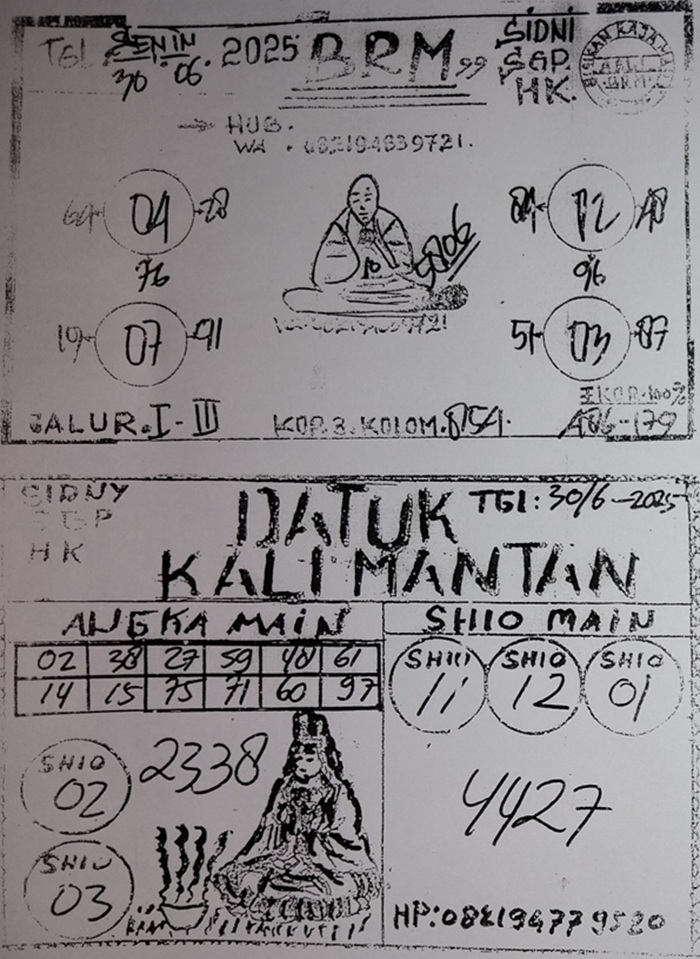 TGL SENIN 30.06.2025 BRM99 SIDNI
SGP.
HK.
HUB.
WA. 082194839721.
64 04 28
76
19 07 91
5806
84 12 48
96
51 03 87
JALUR.I-III
KOP.3.KOLOM.854.
SIDNY
SGP
HK
DATUK
KALIMANTAN
TGl:30/6-2025
ANGKA MAIN
02 38 27 59 48 61
14 15 75 71 60 97
SHIO 02
SHIO 03
2338
SHIO MAIN
SHIO 11
SHIO 12
SHIO 01
4427
HP:082194779520